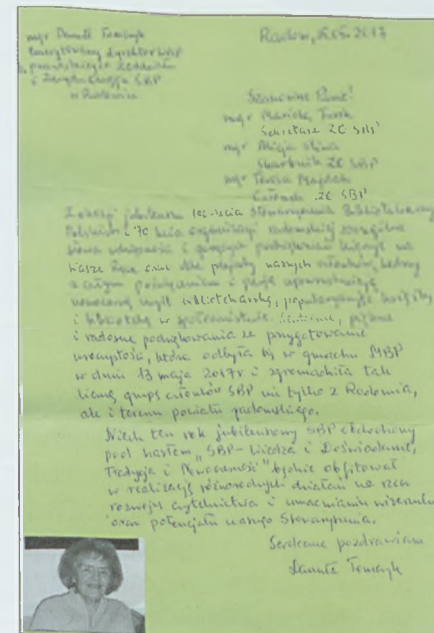 mgr Danuta Tomczyk
emerytowany dyrektor WBP
b. przewodnicząca
i Zarządu Okręgu SBP
w Radomiu
Radom, 15.05.2017
Szanowne Panie!
mgr Mariola Turek
Sekretarz ZO SBP
mgr Alicja
Skarbnik ZO SBP
mgr Teresa
Członek ZO SBP
Z okazji jubileuszu 100-lecia Stowarzyszenia Bibliotekarzy
Polskich i 70 lecia organizacji radomskiej szczególne
słowa wdzięczności i gorących podziękowań kieruję na
Wasze ręce oraz dla plejady naszych członków, którzy
z całym poświęceniem i pasją upowszechniają
nowoczesną myśl bibliotekarską, popularyzując książkę
i bibliotekę w społeczeństwie. piękne
i radosne podziękowania za przygotowanie
uroczystości, która odbyła się w gmachu MBP
w dniu 13 maja 2017r. i zgromadziła tak
liczną grupę członków SBP nie tylko z Radomia,
ale i terenu powiatu radomskiego.
Niech ten rok jubileuszowy SBP obchodzony
pod hasłem „SBP – Wiedza i Doświadczenie,
Tradycja i Nowoczesność" będzie obfitował
w realizację różnorodnych działań na rzecz
rozwoju czytelnictwa i umacniania wizerunku
oraz potencjału naszego Stowarzyszenia.
Serdecznie pozdrawiam
Danuta Tomczyk